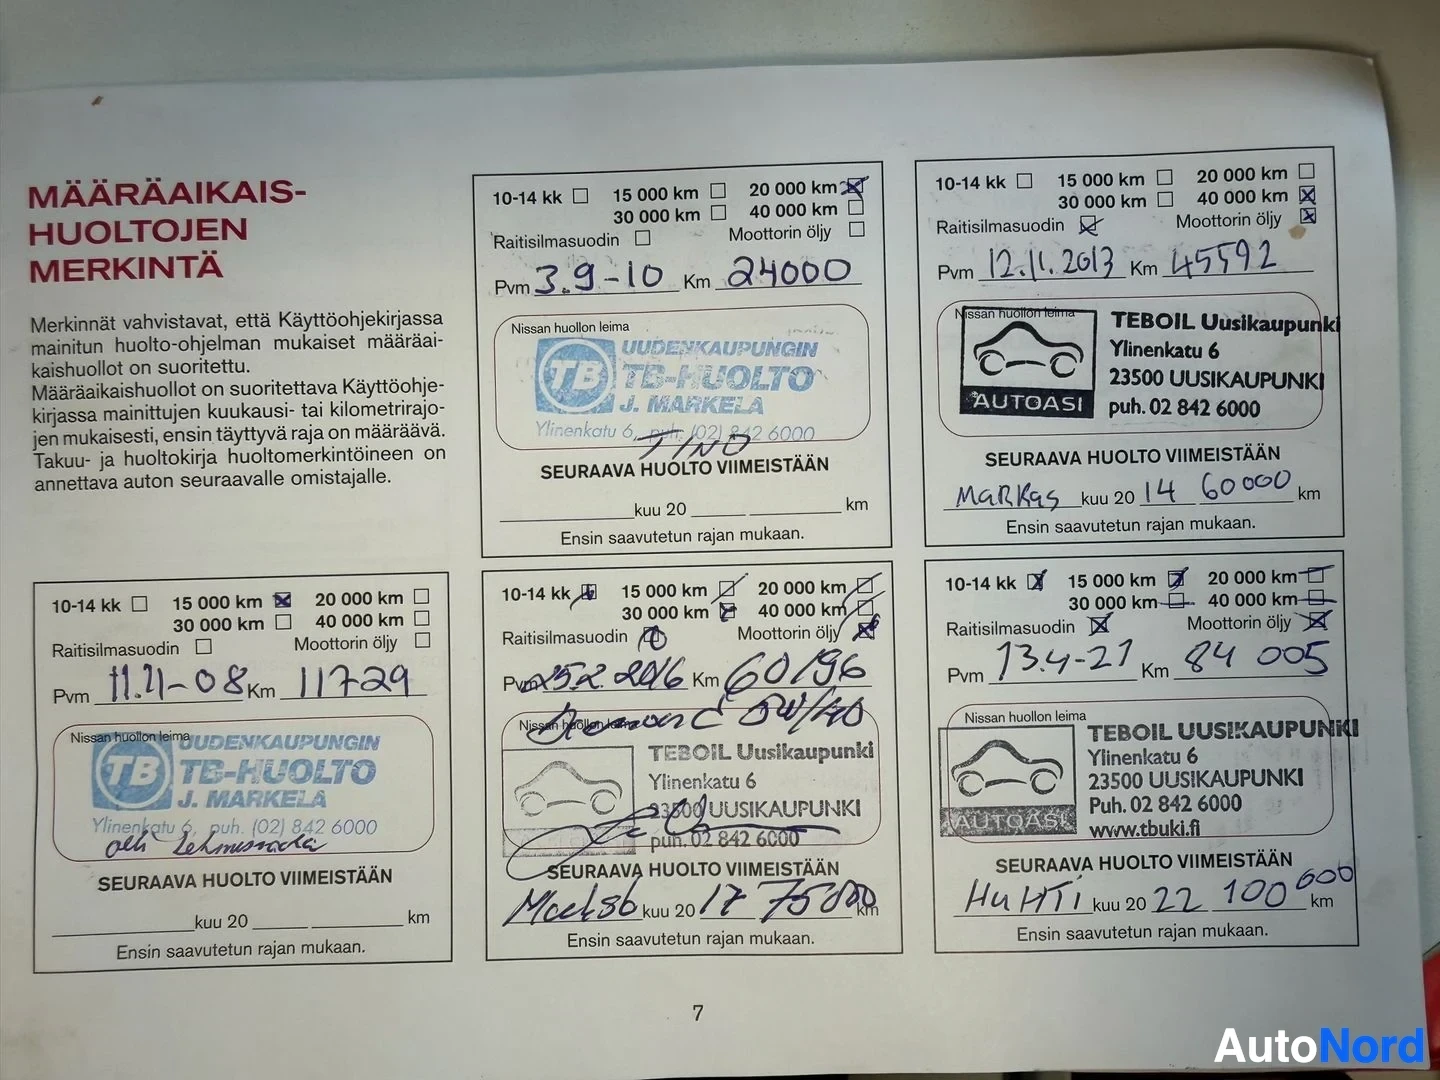 MÄÄRÄAIKAIS-
HUOLTOJEN
MERKINTÄ
Merkinnät vahvistavat, että Käyttöohjekirjassa
mainitun huolto-ohjelman mukaiset määräai-
kaishuollot on suoritettu.
Määräaikaishuollot on suoritettava Käyttöohje-
kirjassa mainittujen kuukausi- tai kilometrirajo-
jen mukaisesti, ensin täyttyvä raja on määräävä.
Takuu- ja huoltokirja huoltomerkintöineen on
annettava auton seuraavalle omistajalle.
10-14 kk 15 000 km 20 000 km
30 000 km 40 000 km
Raitisilmasuodin Moottorin öljy
Pvm 3.9-10 Km 24000
Nissan huollon leima
UUDENKAUPUNGIN
TB TB-HUOLTO
J. MARKELA
Ylinenkatu 6, puh. (02) 842 6000
TINO
SEURAAVA HUOLTO VIIMEISTÄÄN
kuu 20 km
Ensin saavutetun rajan mukaan.
10-14 kk 15 000 km 20 000 km
30 000 km 40 000 km
Raitisilmasuodin Moottorin öljy
Pvm 12.11.2013 Km 45592
Nissan huollon leima
TEBOIL Uusikaupunki
Ylinenkatu 6
23500 UUSIKAUPUNKI
AUTOASI puh. 02 842 6000
SEURAAVA HUOLTO VIIMEISTÄÄN
MaRRas kuu 20 14 60000 km
Ensin saavutetun rajan mukaan.
10-14 kk 15 000 km 20 000 km
30 000 km 40 000 km
Raitisilmasuodin Moottorin öljy
Pvm 11.11-08 Km 11729
Nissan huollon leima
UUDENKAUPUNGIN
TB TB-HUOLTO
J. MARKELA
Ylinenkatu 6, puh. (02) 842 6000
SEURAAVA HUOLTO VIIMEISTÄÄN
kuu 20 km
Ensin saavutetun rajan mukaan.
10-14 kk 15 000 km 20 000 km
30 000 km 40 000 km
Raitisilmasuodin Moottorin öljy
Pvm 25.2.2016 Km 60196
5W/40
Nissan huollon leima
TEBOIL Uusikaupunki
Ylinenkatu 6
23500 UUSIKAUPUNKI
puh. 02 842 6000
SEURAAVA HUOLTO VIIMEISTÄÄN
kuu 20 17 75000 km
Ensin saavutetun rajan mukaan.
10-14 kk 15 000 km 20 000 km
30 000 km 40 000 km
Raitisilmasuodin Moottorin öljy
Pvm 13.4-21 Km 84 005
Nissan huollon leima
TEBOIL UUSIKAUPUNKI
Ylinenkatu 6
23500 UUSIKAUPUNKI
Puh. 02 842 6000
AUTOASI www.tbuki.fi
SEURAAVA HUOLTO VIIMEISTÄÄN
HuHTi kuu 20 22 100 000 km
Ensin saavutetun rajan mukaan.
7
AutoNord